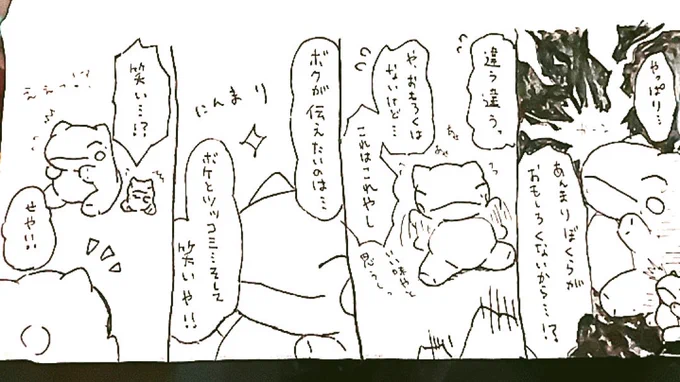 やっぱり…
あんまりぼくらが
おもしろくないから…!?
違う違うっ
や、おもろくは
ないけど…
これはこれやし
いい味やと
思うしっ
あせ
あせ
ボクが伝えたいのは…
にんまり
ボケとツッコミ…そして
笑いや!!
笑い…!?
せや!!